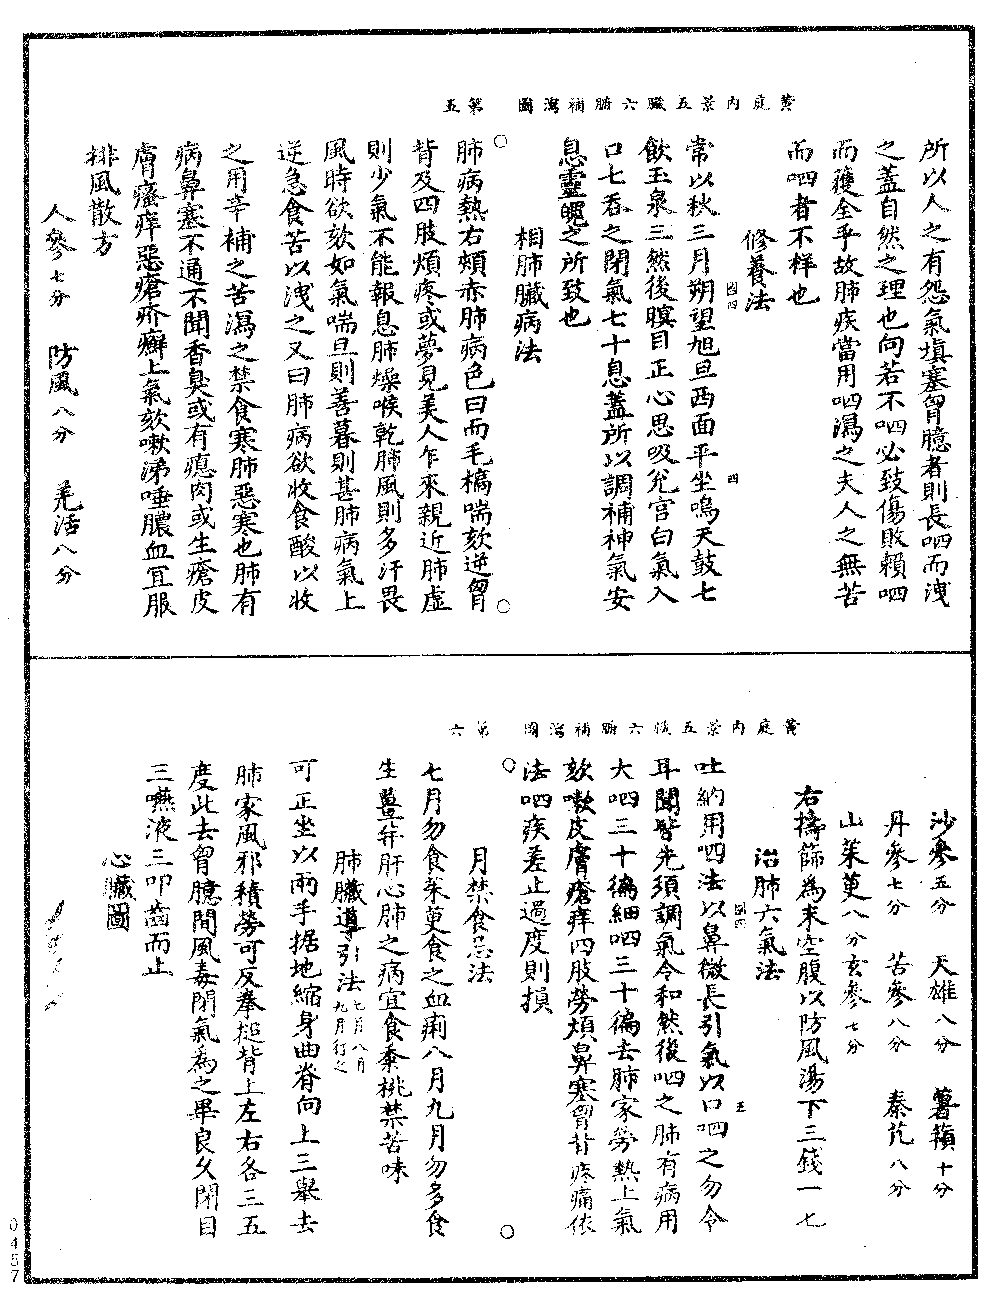 黃庭內景五臟六腑補瀉圖　第五
所以人之有怨氣填塞胷臆者則長呬而洩
之蓋自然之理也向若不呬必致傷敗賴呬
而獲全乎故肺疾當用呬瀉之夫人之無苦
而呬者不祥也
修養法
常以秋三月朔望旭旦西面平坐鳴天鼓七
飲玉泉三然後瞑目正心思吸兊宫白氣入
口七吞之閉氣七十息蓋所以調補神氣安
息靈魄之所致也
相肺臟病法
肺病熱右頰赤肺病色白而毛槁喘欬逆胷
背及四肢煩疼或夢見美人乍來親近肺虛
則少氣不能報息肺燥喉乾肺風則多汗畏
風時欲欬如氣喘旦則善暮則甚肺病氣上
逆急食苦以洩之又曰肺病欲收食酸以收
之用辛補之苦瀉之禁食寒肺惡寒也肺有
病鼻塞不通不聞香臭或有瘜肉或生瘡皮
膚瘙痒惡瘡疥癬上氣欬嗽涕唾膿血宜服
排風散方
人參七分　防風八分　羌活八分
黃庭內景五臟六腑補瀉圖　第六
沙參五分　天雄八分　薯蕷十分
丹參七分　苦參八分　秦艽八分
山茱萸八分玄參七分
右擣篩為末空腹以防風湯下三錢一七
治肺六氣法
吐納用呬法以鼻微長引氣以口呬之勿令
耳聞皆先須調氣令和然後呬之肺有病用
大呬三十徧細呬三十徧去肺家勞熱上氣
欬嗽皮膚瘡痒四肢勞煩鼻塞胷背疼痛依
法呬疾差止過度則損
月禁食忌法
七月勿食茱萸食之血痢八月九月勿多食
生薑并肝心肺之病宜食黍桃禁苦味
肺臟導引法七月八月九月行之
可正坐以兩手据地縮身曲脊向上三舉去
肺家風邪積勞可反拳搥背上左右各三五
度此去胷臆間風毒閉氣為之畢良久閉目
三嚥液三叩齒而止
心臟圖
0457